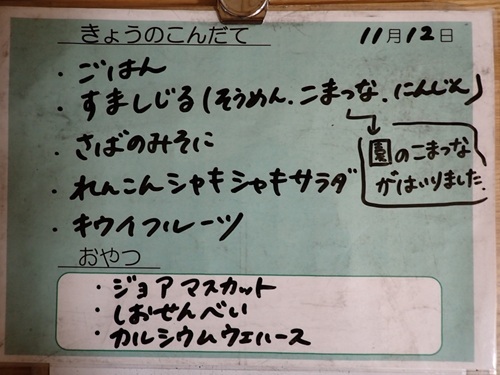 きょうのこんだて 11月12日
・ごはん
・すましじる(そうめん.こまつな.にんじん)
・さばのみそに
園のこまつな
がはいりました.
・れんこんシャキシャキサラダ
・キウイフルーツ
おやつ
・ジョアマスカット
・しおせんべい
・カルシウムウエハース